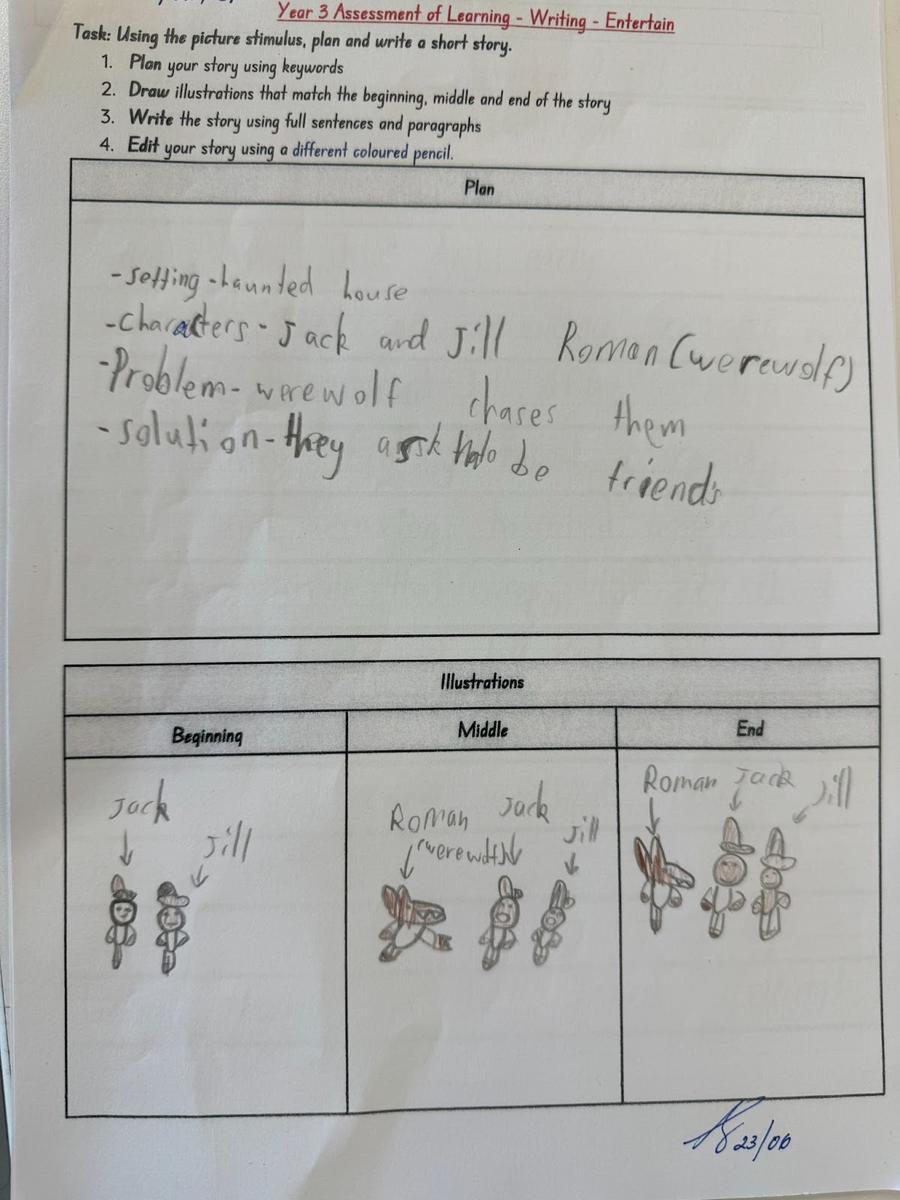 Year 3 Assessment of Learning - Writing - Entertain
Task: Using the picture stimulus, plan and write a short story.
1. Plan your story using keywords
2. Draw illustrations that match the beginning, middle and end of the story
3. Write the story using full sentences and paragraphs
4. Edit your story using a different coloured pencil.
Plan
-setting-haunted house
-characters- Jack and Jill Roman (werewolf)
-Problem- werewolf chases them
-solution-they ask to be friends
Illustrations
Beginning Middle End
Jack
Jill
Roman Jack Jill
(werewolf)
Roman Jack Jill
23/06